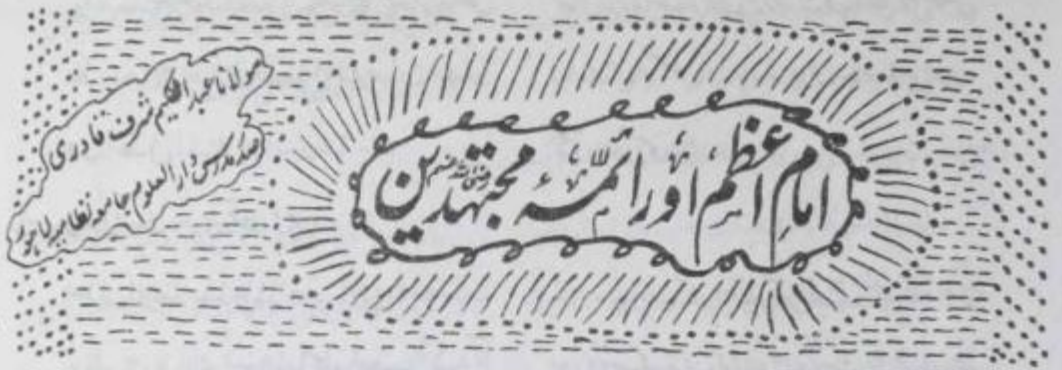 امام اعظم اور ائمہ مجتہدین رضی اللہ عنہم
مولانا عبدالحکیم شرف قادری
صدر مدرس دارالعلوم جامعہ نظامیہ لاہور